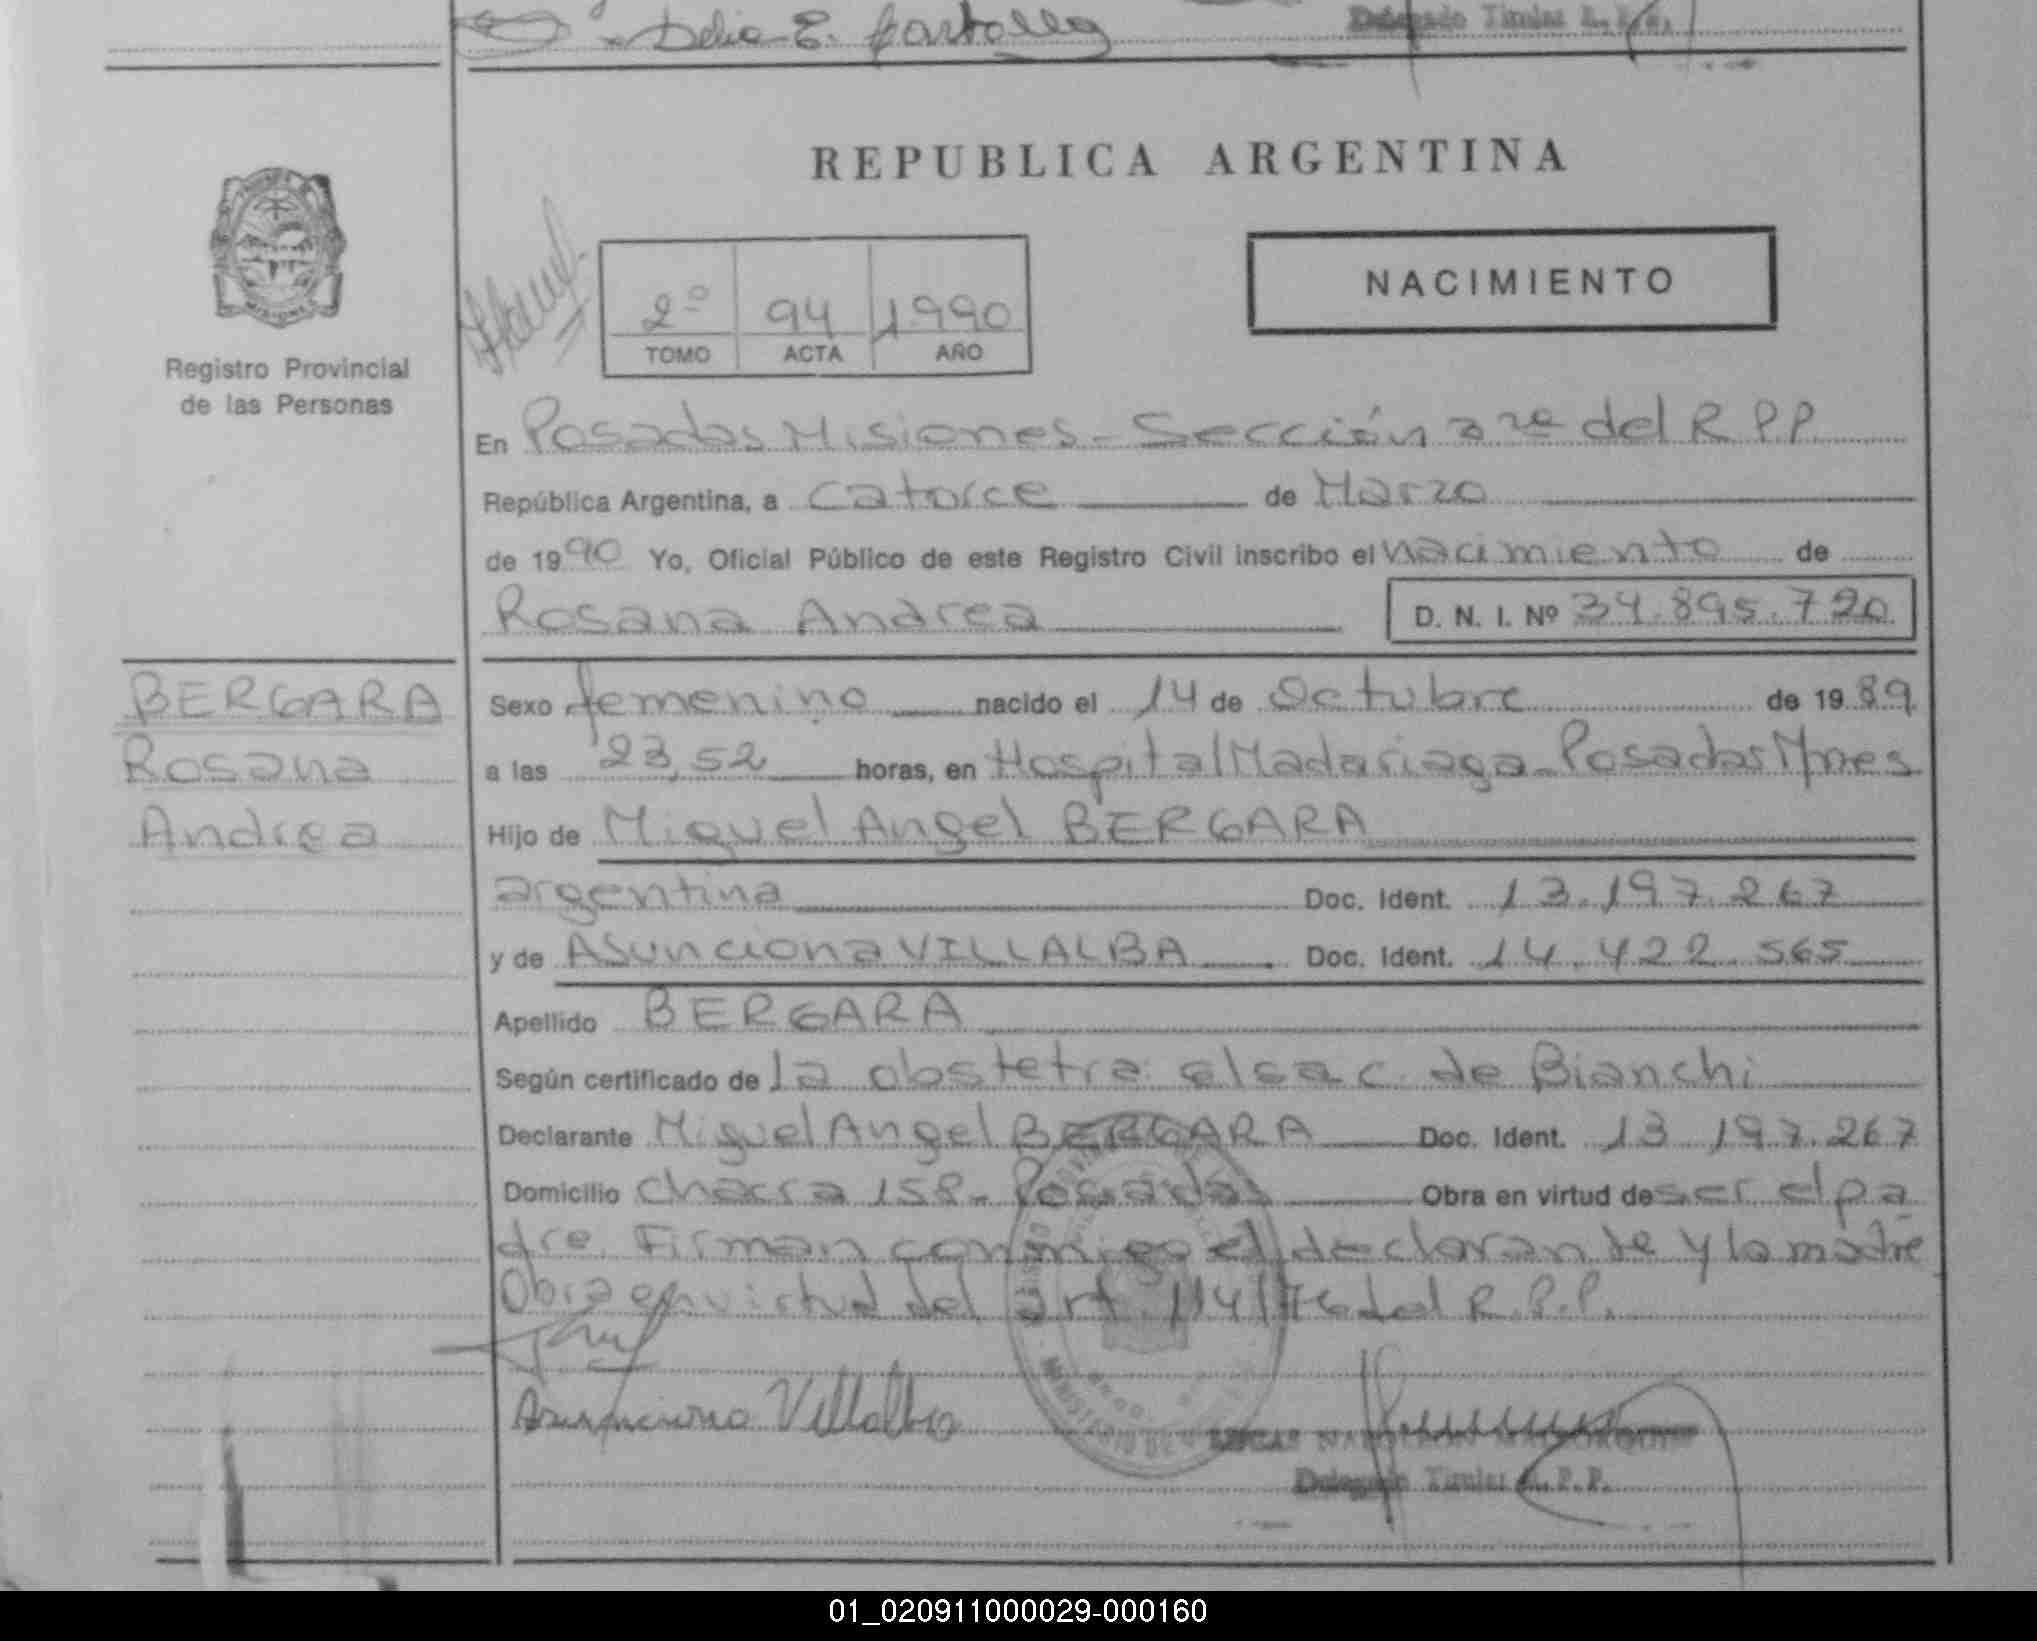 Delia E.
Delegado Titular R. P. P.
REPUBLICA ARGENTINA
NACIMIENTO
2º 94 1990
TOMO ACTA AÑO
Registro Provincial
de las Personas
En Posadas Misiones - Sección 3ra del R P P
República Argentina, a catorce de Marzo
de 1990 Yo, Oficial Público de este Registro Civil inscribo el nacimiento de
Rosana Andrea D. N. I. Nº 34.895.720
BERGARA
Rosana
Andrea
Sexo femenino nacido el 14 de Octubre de 1989
a las 23,52 horas, en Hospital Madariaga - Posadas Mnes
Hijo de Miguel Angel BERGARA
argentina Doc. Ident. 13.197.267
y de Asunciona VILLALBA Doc. Ident. 14.422.565
Apellido BERGARA
Según certificado de la obstetra elsa c. de Bianchi
Declarante Miguel Angel BERGARA Doc. Ident. 13 197.267
Domicilio chacra 158 - Posadas Obra en virtud de ser el pa
dre. Firman conmigo el declarante y la madre
Obra en virtud del art 114/76 del R.P.P.
Asunciona Villalba
LUCAS NAPOLEON
Delegado Titular R. P. P.
01_020911000029-000160